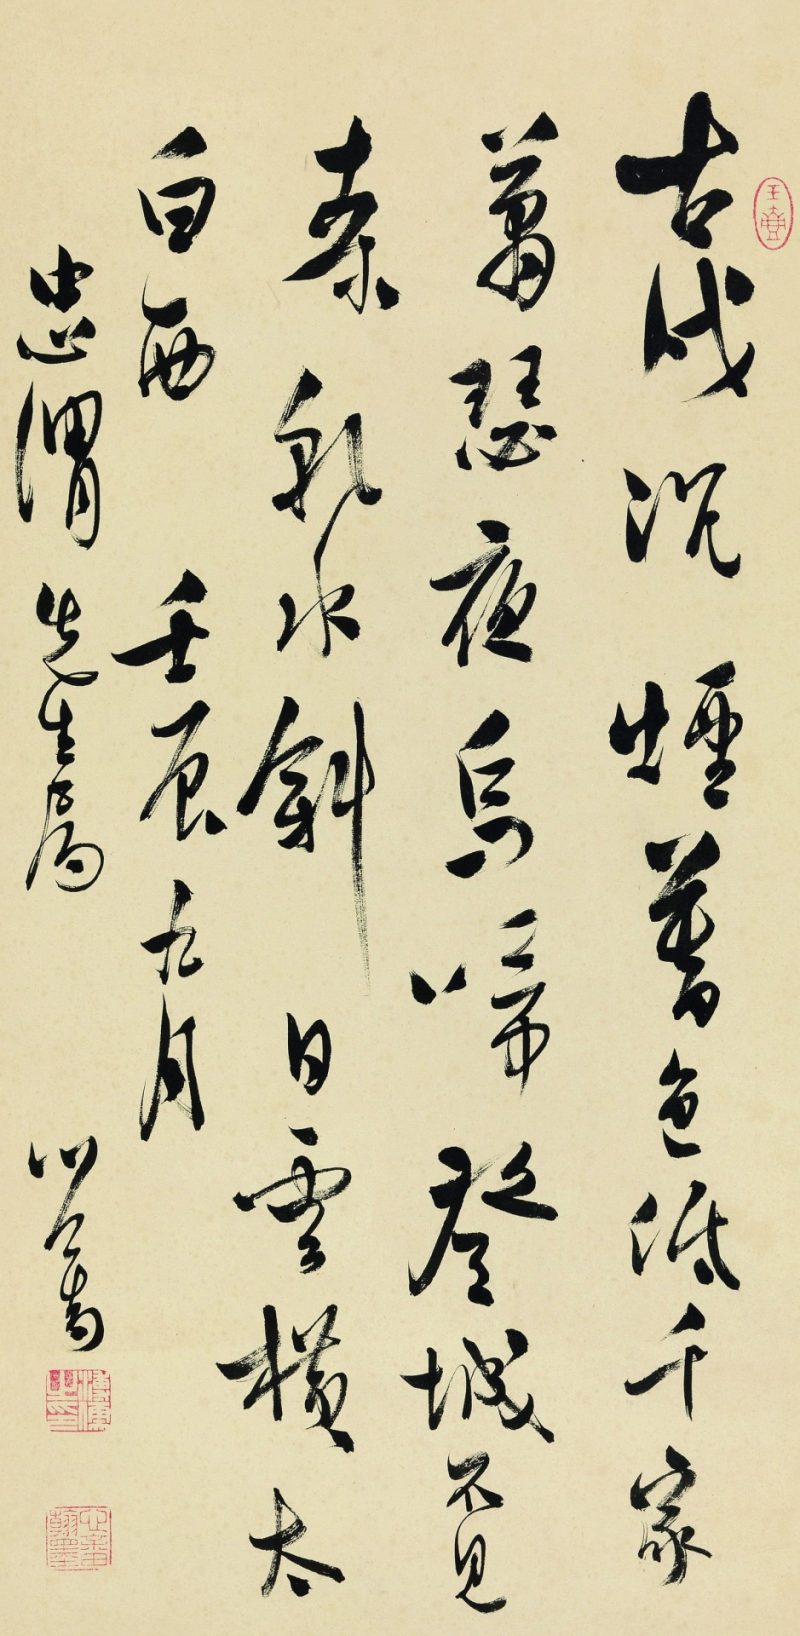 古戍沉煙暮色低千家
蕭瑟夜烏啼登城不見
秦川水斜日雲橫太
白西 壬辰九月
忠渭先生屬 心畬